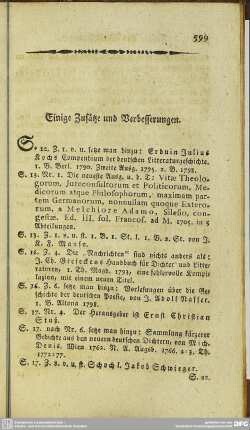 599
Einige Zusätze und Verbesserungen.
S. 12. Z. 1. v. u. setze man hinzu: Erduin Julius
Kochs Compendium der deutschen Litteraturgeschichte.
1. B. Berl. 1790. Zweite Ausg. 1795. 2. B. 1798.
S. 13. Nr. 1. Die neueste Ausg. u. d. T: Vitæ Theolo-
gorum, Jureconsultorum et Politicorum, Me-
dicorum atque Philosophorum, maximam par-
tem Germanorum, nonnullam quoque Extero-
rum, a Melchiore Adamo, Silesio, con-
gestæ. Ed. III. fol. Francof. ad M. 1705. in 5
Abteilungen.
S. 13. Z. 1. v. u. st. 1. B. 1. St. l. 1. B. 2. St. von J.
K. F. Manso.
S. 16. Z. 4. Die „Nachrichten“ sind nichts anders als:
J. Ch. Giesecke's Handbuch für Dichter und Litte-
ratoren, 1 Th. Magd. 1793, eine fehlervolle Kompi-
lazion, mit einem neuen Titel.
S. 16. Z. 6. setze man hinzu: Vorlesungen über die Ge-
schichte der deutschen Poesie, von J. Adolf Nasser.
1 B. Altona 1798.
S. 17. Nr. 4. Der Herausgeber ist Ernst Christian
S. 17. nach Nr. 6. setze man hinzu: Sammlung kürzerer
Gedichte aus den neuern deutschen Dichtern, von Mich.
Denis. Wien 1762. N. A. Augsb. 1766. 2-3. Th.
1772-77.
S. 17. Z. 2. v. u. st. Schoch l. Jakob Schwieger.